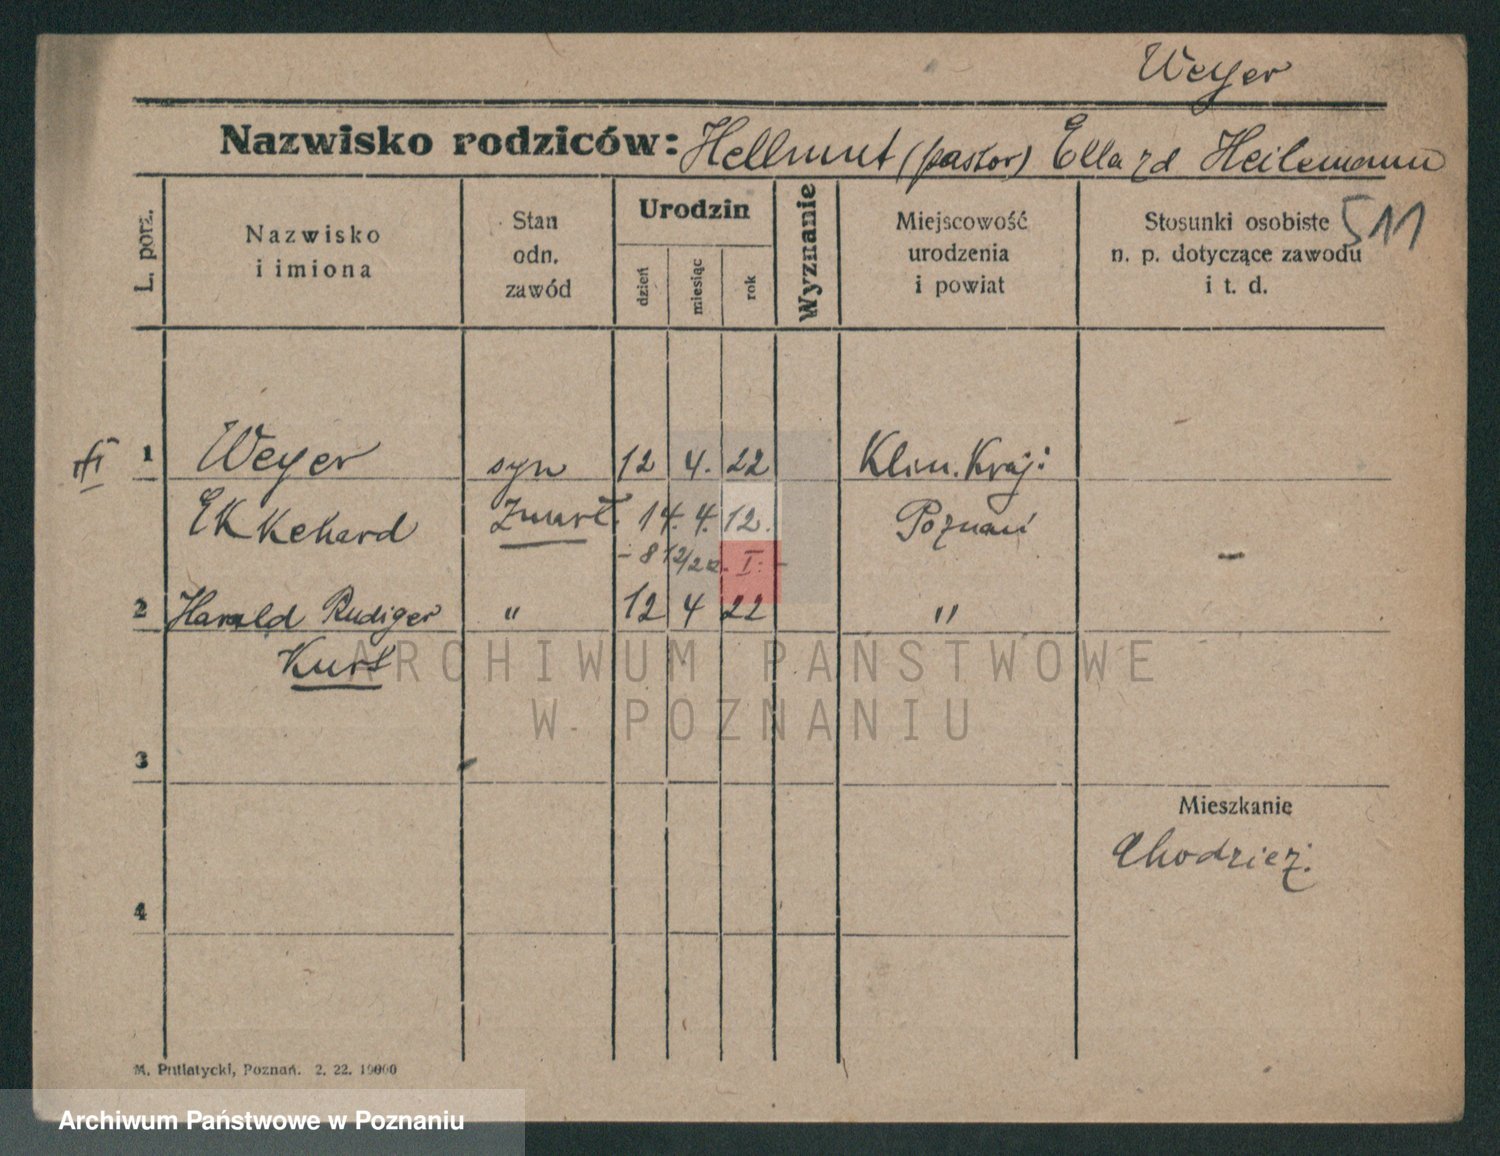 Weyer
Nazwisko rodziców: Hellmut (pastor) Ella zd Heilemann
511
L. porz.
Nazwisko
i imiona
Stan
odn.
zawód
Urodzin
dzień
miesiąc
rok
Wyznanie
Miejscowość
urodzenia
i powiat
Stosunki osobiste
n. p. dotyczące zawodu
i t. d.
1 Weyer syn 12 4. 22 Klin. Kraj:
Ekkehard Zmarł. 14. 4. 12. Poznań
- 8 12/22. I. - –
2 Harald Rudiger " 12 4 22 "
Kurt
ARCHIWUM PAŃSTWOWE
W POZNANIU
3
Mieszkanie
Chodzież.
4
M. Putiatycki, Poznań. 2. 22. 10000
Archiwum Państwowe w Poznaniu